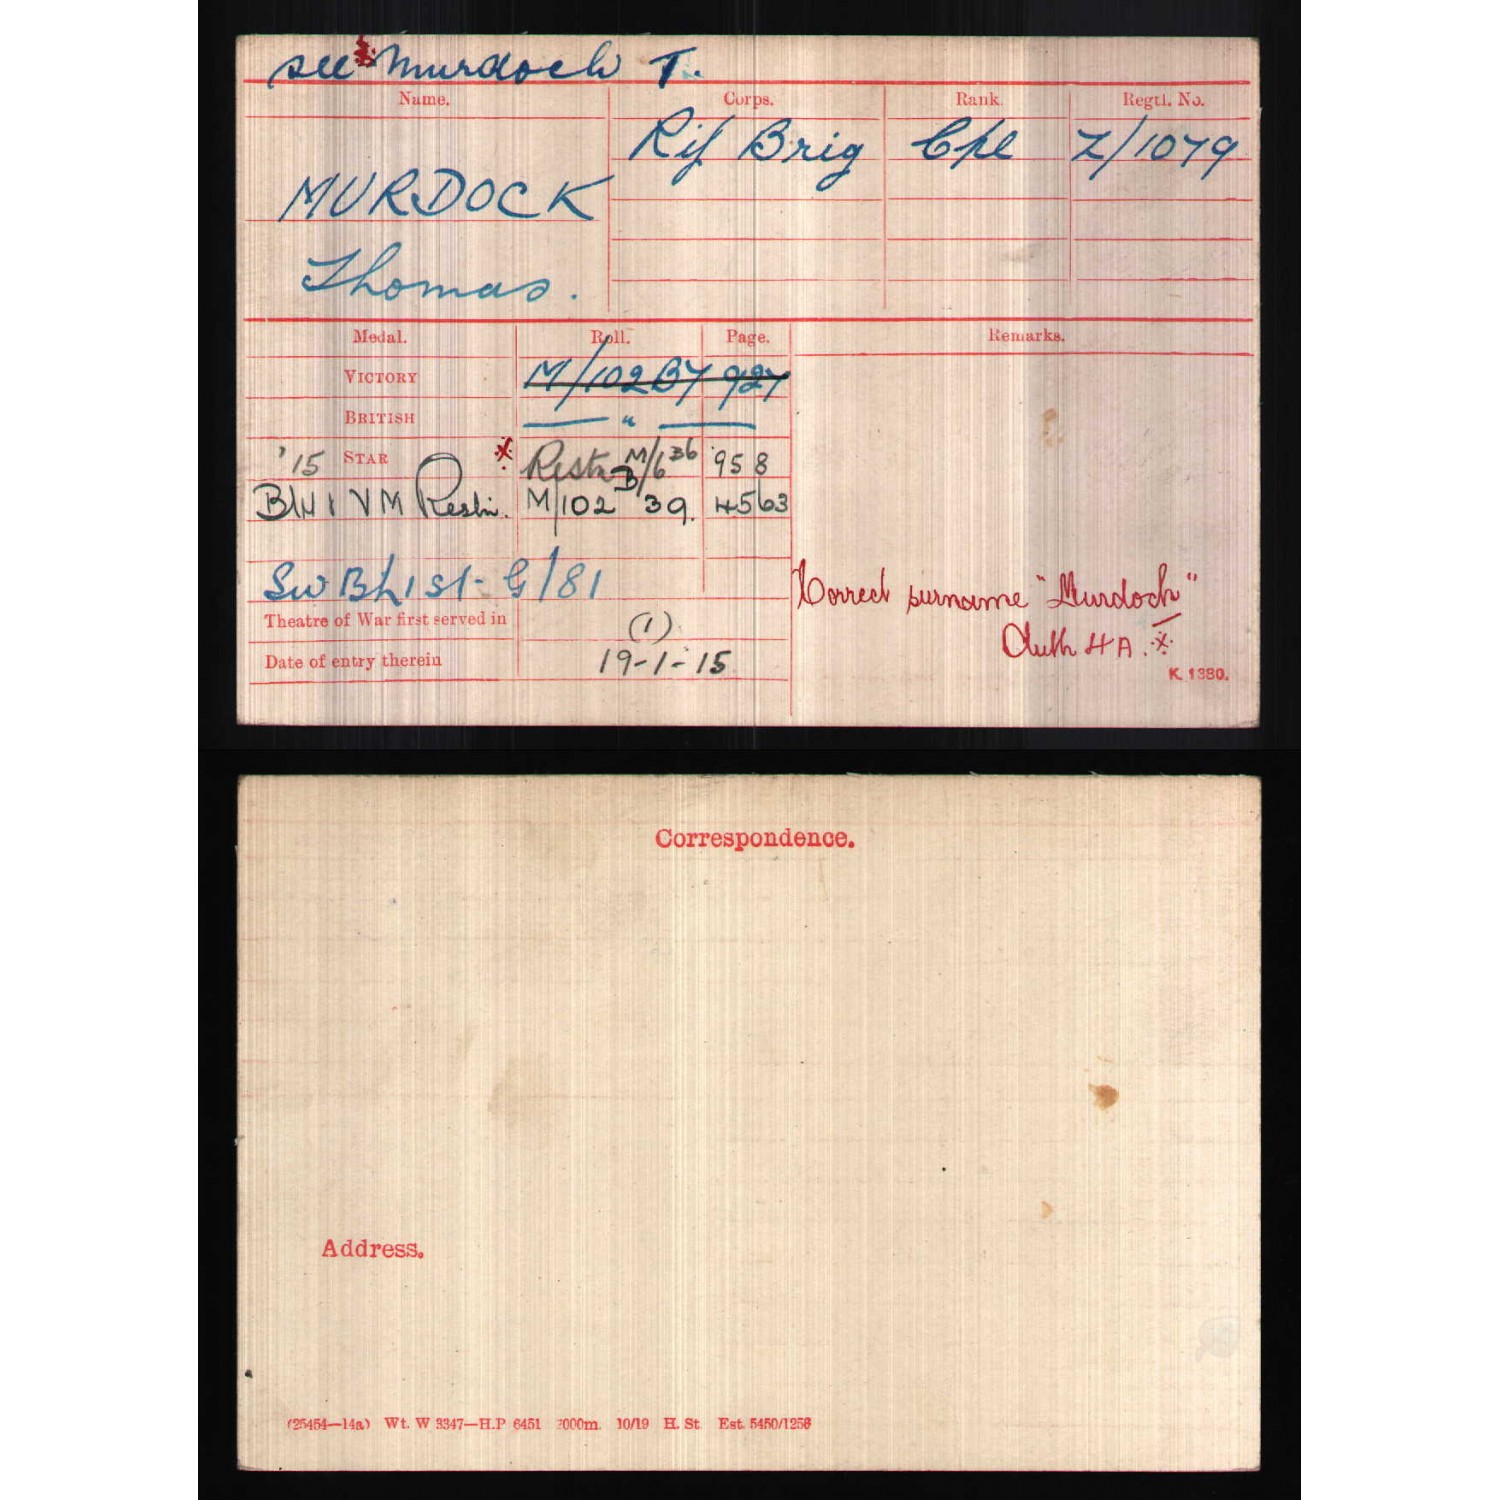 see Murdoch T.
Name. Corps. Rank. Regtl. No.
Rif Brig Cpl Z/1079
MURDOCK
Thomas.
Medal. Roll. Page. Remarks.
VICTORY M/102 B7 927
BRITISH — " —
'15 STAR * Restn M/6 B36 958
BW & VM Restn. M/102 B39. 4563
SWB List G/81
Correct surname "Murdoch"
Theatre of War first served in (1)
Auth 4A. *
Date of entry therein 19-1-15
K. 1380.
Correspondence.
Address.
(25454—14a) Wt. W 3347—H.P 6451 000m. 10/19 H. St. Est. 5450/1256